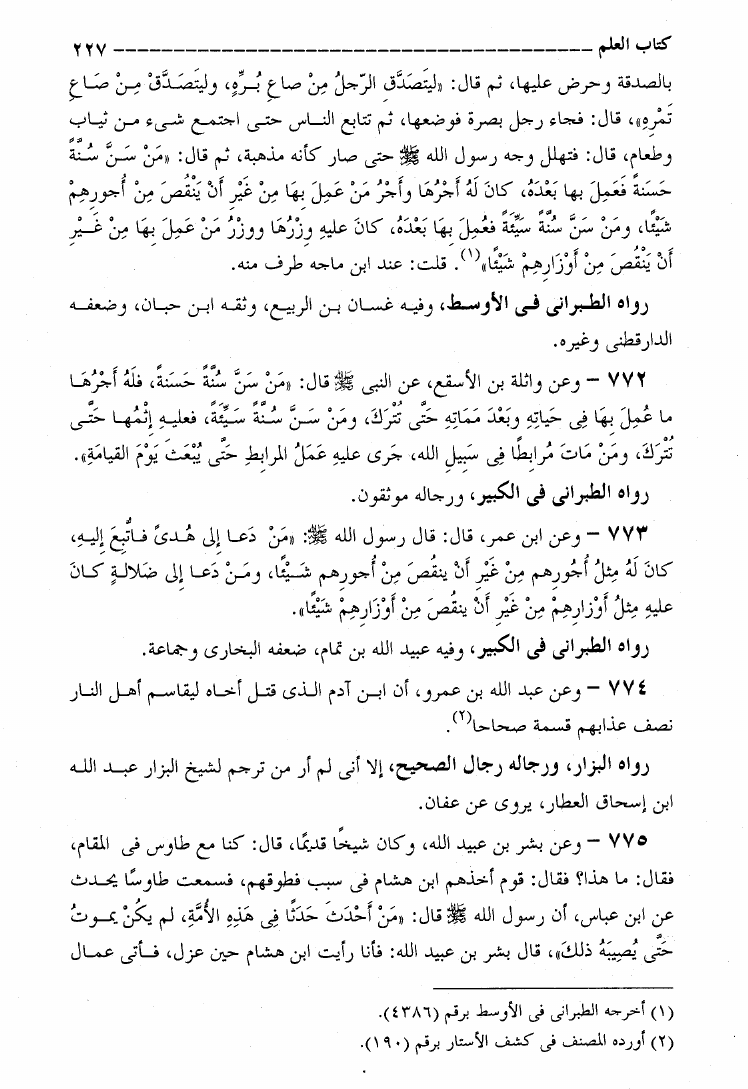 كتاب العلم ــــــــــــــــــــــــــــــــــــــــ ٢٢٧
بالصدقة وحرض عليها، ثم قال: «ليتَصَدَّقِ الرّجلُ مِنْ صاعِ بُـرِّهِ، وليتَصَـدَّقْ مِـنْ صَـاعِ
تَمْرِهِ»، قال: فجاء رجل بصرة فوضعها، ثم تتابع النـاس حتـى اجتمـع شىء مـن ثيـاب
وطعام، قال: فتهلل وجه رسول الله ﷺ حتى صار كأنه مذهبة، ثم قال: «مَنْ سَـنَّ سُـنَّةً
حَسَنةً فَعَمِلَ بها بَعْدَهُ، كانَ لَهُ أجْرُهَا وأجْرُ مَنْ عَمِلَ بِهَا مِنْ غَيْرِ أَنْ يَنْقُصَ مِنْ أُجورِهِمْ
شَيْئًا، ومَنْ سَنَّ سُنَّةً سَيِّئَةً فعُمِلَ بِهَا بَعْدَهُ، كانَ عليهِ وِزْرُهَا ووِزْرُ مَنْ عَمِلَ بِهَا مِنْ غَـيْرِ
أَنْ يَنْقُصَ مِنْ أَوْزَارِهِمْ شَيْئًا»(١). قلت: عند ابن ماجه طرف منه.
رواه الطـبرانى فـى الأوسـط، وفيـه غسـان بـن الربيـع، وثقـه ابـن حبـان، وضعفـه
الدارقطنى وغيره.
٧٧٢ – وعن واثلة بن الأسقع، عن النبى ﷺ قال: «مَنْ سَنَّ سُنَّةً حَسَنةً، فلَهُ أجْرُهَـا
ما عُمِلَ بِهَا فِى حَيَاتِهِ وبَعْدَ مَمَاتِهِ حَتَّى تُتْرَكَ، ومَنْ سَـنَّ سُـنَّةً سَـيِّئَةً، فعليـهِ إثْمُهـا حَتَّـى
تُتْرَكَ، ومَنْ مَاتَ مُرابِطًا فِى سَبِيلِ الله، جَرى عليهِ عَمَلُ المرابطِ حَتَّى يُبْعَثَ يَوْمَ القيامَةِ».
رواه الطبرانى فى الكبير، ورجاله موثقون.
٧٧٣ – وعن ابن عمر، قال: قال رسول الله ﷺ: «مَنْ دَعـا إلى هُـدىً فـاتُّبِعَ إليـهِ،
كانَ لَهُ مِثلُ أُجُورِهم مِنْ غَيْرِ أَنْ ينقُصَ مِنْ أُجورِهم شَـيْئًا، ومَـنْ دَعـا إلى ضَلالـةٍ كـانَ
عليهِ مِثلُ أوْزارِهِمْ مِنْ غَيْرِ أَنْ ينقُصَ مِنْ أوْزَارِهِمْ شَيْئًا».
رواه الطبرانى فى الكبير، وفيه عبيد الله بن تمام، ضعفه البخارى وجماعة.
٧٧٤ – وعن عبد الله بن عمرو، أن ابـن آدم الـذى قتـل أخـاه ليقاسـم أهـل النـار
نصف عذابهم قسمة صحاحا(٢).
رواه البزار، ورجاله رجال الصحيح، إلا أنى لم أر من ترجم لشيخ البزار عبـد اللـه
ابن إسحاق العطار، يروى عن عفان.
٧٧٥ – وعن بشر بن عبيد الله، وكان شيخًا قديمًا، قال: كنا مع طاوس فى المقام،
فقال: ما هذا؟ فقال: قوم أخذهم ابن هشام فى سبب فطوقهم، فسمعت طاوسًا يحـدث
عن ابن عباس، أن رسول الله ﷺ قال: «مَنْ أَحْدَثَ حَدَثًا فِى هَذِهِ الأُمَّةِ، لم يكُنْ يمـوتُ
حَتَّى يُصِيبَهُ ذلكَ»، قال بشر بن عبيد الله: فأنا رأيت ابن هشام حين عزل، فـأتى عمـال
(١) أخرجه الطبرانى فى الأوسط برقم (٤٣٨٦).
(٢) أورده المصنف فى كشف الأستار برقم (١٩٠).